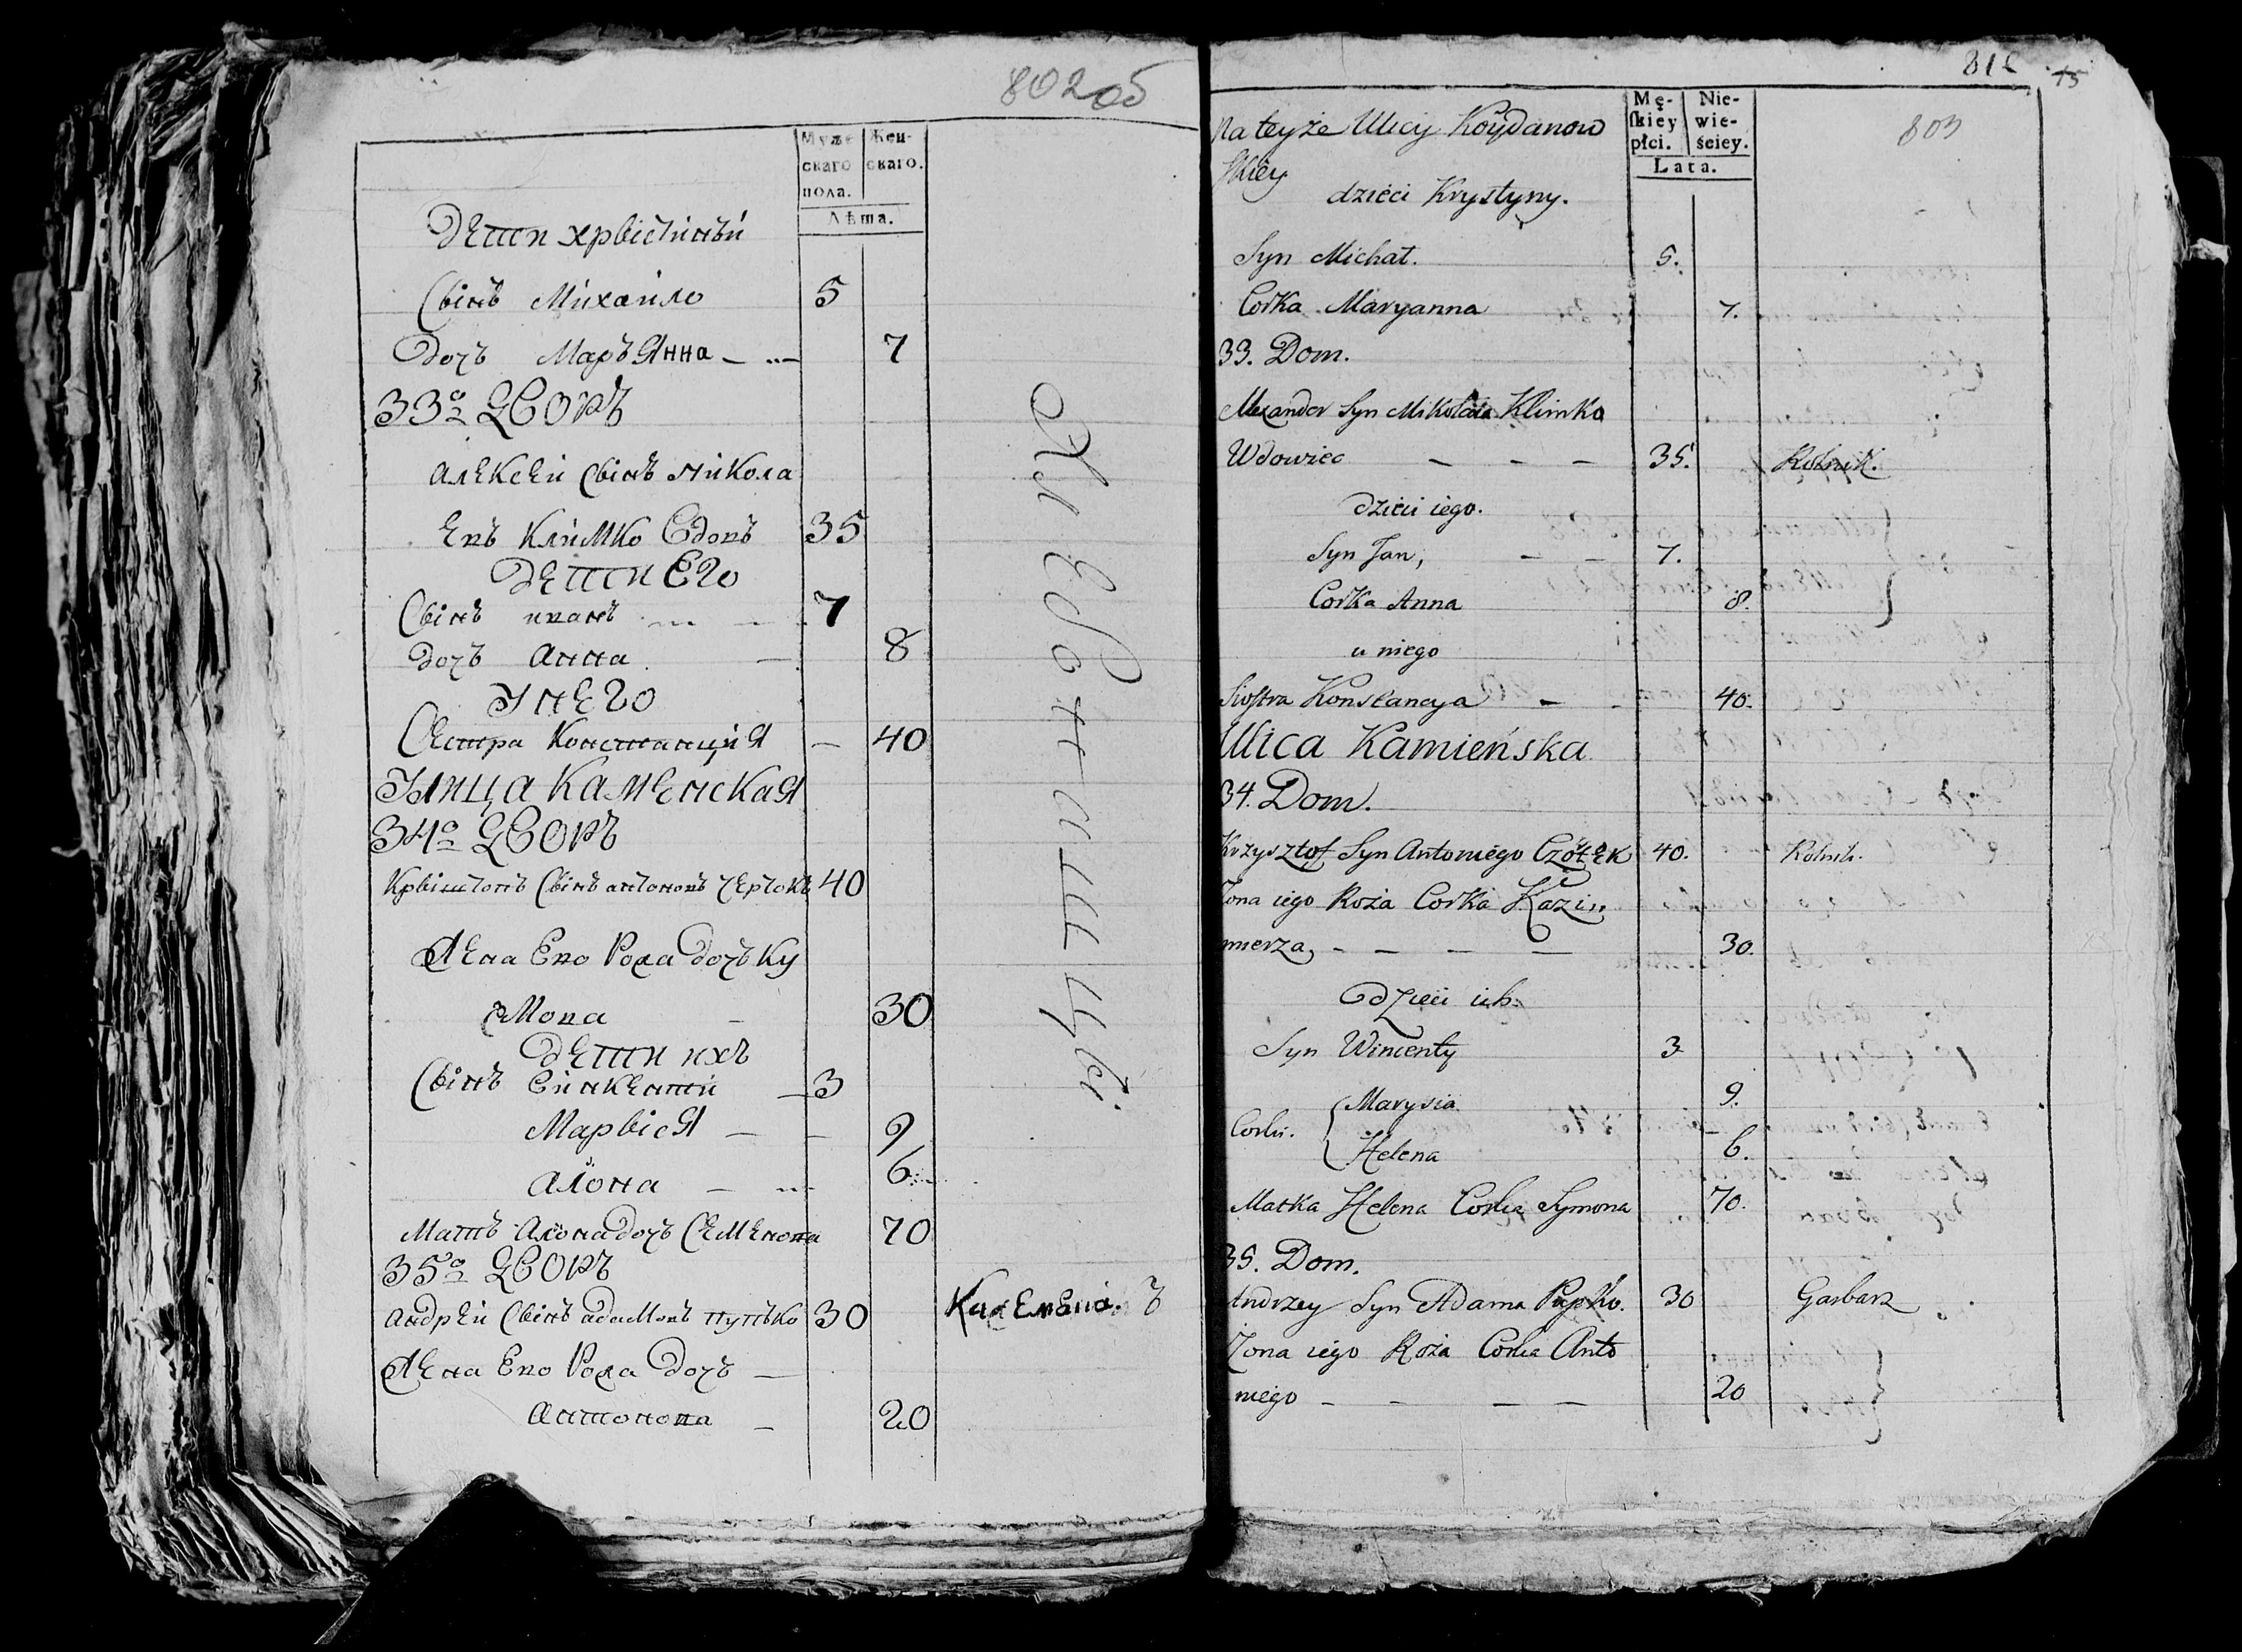 802об
Муже
скаго
пола.
Жен-
скаго.
Лѣта.
Дети хрыстины
Сынъ Михаило 5
Дочъ Маръянна 7
33й Дворъ
Алексей Сынъ Никола
евъ Климко Вдовъ 35
Дети Его
Сынъ иванъ 7
дочъ Анна 8
У него
Сестра Констанция 40
Улица Каменская
34й Дворъ
Крыштопъ Сынъ антоновъ 40
Жена Ево Рожа дочъ Ку
змова 30
Дети ихъ
Сынъ Винкентий 3
Марыся 9
Алона 6
Матъ Алона дочъ Семенова 70
35й Дворъ
Андрей Сынъ адамовъ пупъко 30
Жена Ево Рожа Дочъ
Антонова 20
818 15
803
Mę-
skiey
płci.
Nie-
wie-
ściey.
Lata.
Na teyże Ulicy Koydanow
skiey
dzieci Krystyny.
Syn Michał. 5.
Corka Maryanna 7.
33. Dom.
Alexander Syn Mikołaia Klimko
Wdowiec 35. Rolnik.
dzieci iego.
Syn Jan, 7.
Corka Anna 8.
u niego
Siostra Konstancya 40.
Ulica Kamieńska
34. Dom.
Krzysztof Syn Antoniego Czołek 40. Rolnik.
Zona iego Roża Corka Kazi„
mierza, 30.
dzieci ich.
Syn Wincenty 3
Corki. { Marysia 9.
Helena 6.
Matka Helena Corka Symona 70.
35. Dom.
Andrzey Syn Adama Pupko. 30 Garbarz
Zona iego Roża Corka Anto
niego 20